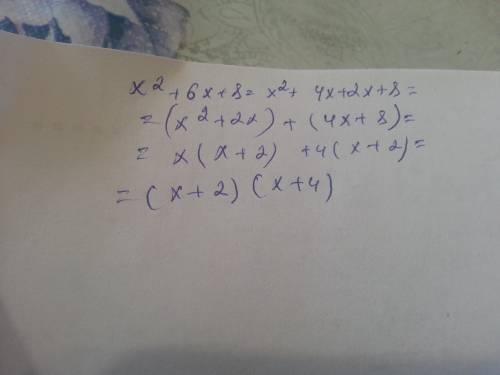 x² + 6x + 8 = x² + 4x + 2x + 8 =
= (x² + 2x) + (4x + 8) =
= x (x + 2) + 4 (x + 2) =
= (x + 2) (x + 4)